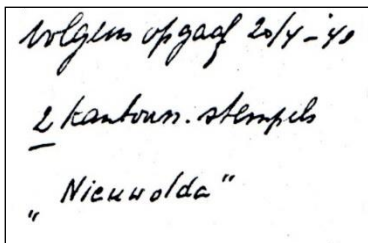 volgens opgaaf 20/4-'40
2 kantoorn. stempels
„ Nieuwolda"